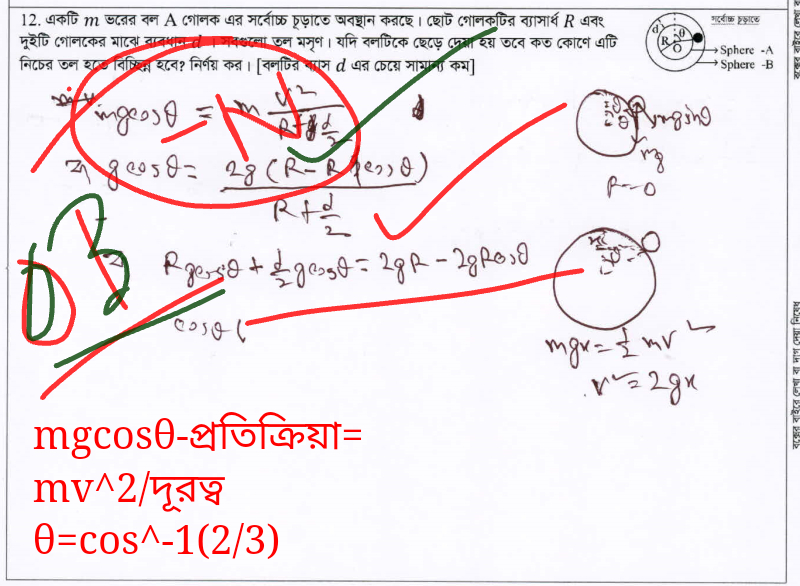 12. একটি m ভরের বল A গোলক এর সর্বোচ্চ চূড়াতে অবস্থান করছে। ছোট গোলকটির ব্যাসার্ধ R এবং
দুইটি গোলকের মাঝে ব্যবধান d । সবগুলো তল মসৃণ। যদি বলটিকে ছেড়ে দেয়া হয় তবে কত কোণে এটি
নিচের তল হতে বিচ্ছিন্ন হবে? নির্ণয় কর। [বলটির ব্যাস d এর চেয়ে সামান্য কম]
সর্বোচ্চ চূড়াতে
d
R θ
O
Sphere -A
Sphere -B
mgcosθ = m v²/(R+d/2)
-N
বা gcosθ = 2g(R-Rcosθ)/(R+d/2)
Rgcosθ + d/2 gcosθ = 2gR - 2gRcosθ
cosθ(
mgsinθ
mg
R=0
mgx = 1/2 mv²
v² = 2gx
mgcosθ-প্রতিক্রিয়া=
mv^2/দূরত্ব
θ=cos^-1(2/3)